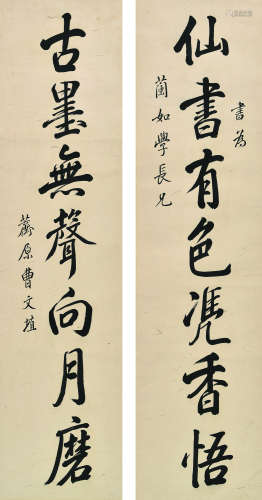 書為
蘭如學長兄
仙書有色凭香悟
古墨無聲向月磨
薺原曹文埴